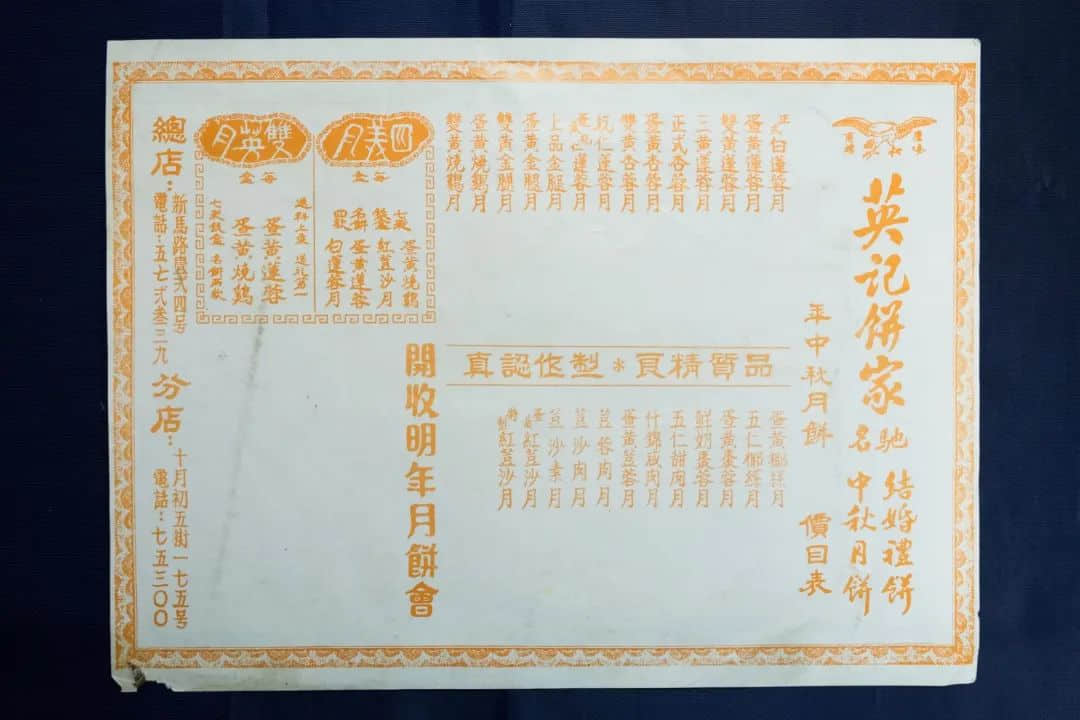 英記餅家
馳名
結婚禮餅
中秋月餅
年中秋月餅
價目表
蓮蓉月
蛋黃蓮蓉月
雙黃蓮蓉月
三黃蓮蓉月
正式杏蓉月
蛋黃杏蓉月
雙黃杏蓉月
杬仁蓮蓉月
蓮蓉月
上品金腿月
蛋黃金腿月
雙黃金腿月
蛋黃燒鷄月
雙黃燒鷄月
品質精良＊製作認真
蛋黃椰絲月
五仁椰絲月
蛋黃棗蓉月
鮮奶棗蓉月
五仁甜肉月
什錦咸肉月
蛋黃荳蓉月
荳蓉肉月
荳沙肉月
荳沙素月
蛋黃紅荳沙月
紅荳沙月
四義月
每盒
七彩
蛋黃燒鷄
紅荳沙月
名餅
蛋黃蓮蓉
四款
白蓮蓉月
雙英月
每盒
選料上乘 送礼第一
蛋黃蓮蓉
蛋黃燒鷄
七彩鉄盒 名餅兩款
開收明年月餅會
總店：
新馬路壹弍四号
電話：五七弍叁三九
分店：
十月初五街一七五号
電話：七五三〇〇